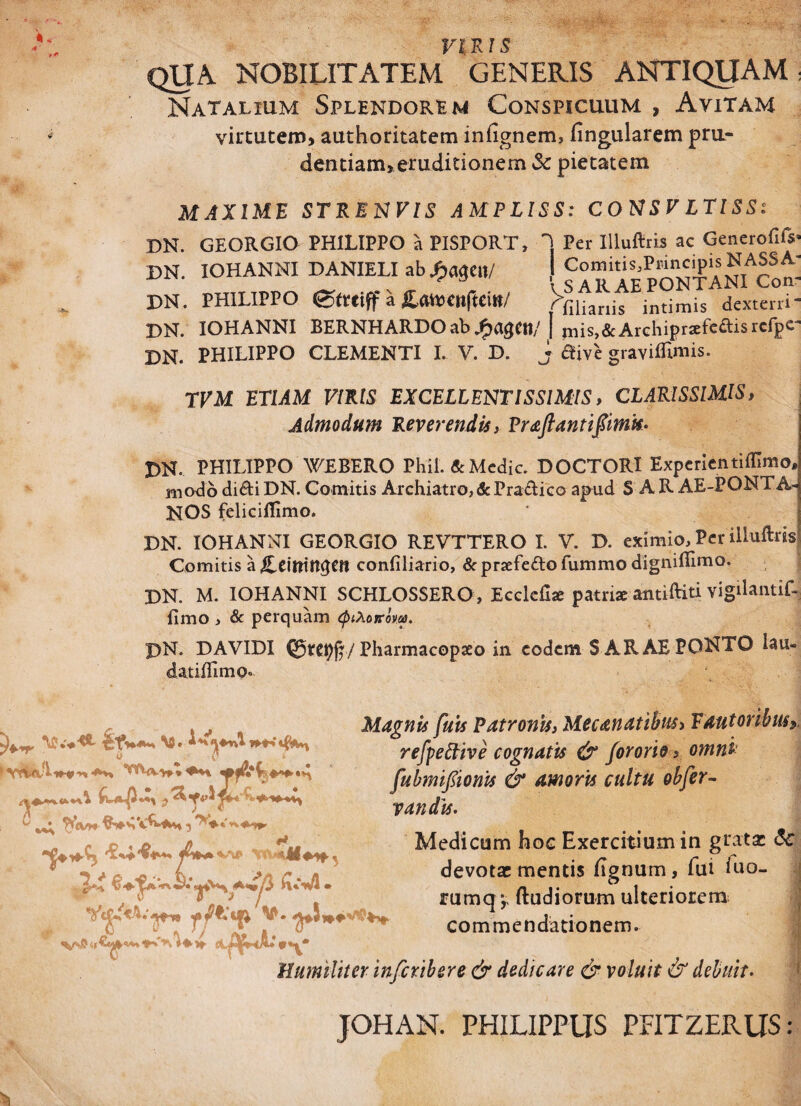 VIRIS
QUA NOBILITATEM GENERIS ANTIQUAM,
NATALIUM SPLENDOREM CONSPICUUM, AVITAM
virtutem, authoritatem inſignem, ſingularem pru-
dentiam, eruditionem & pietatem
MAXIME STRENVIS AMPLISS: CONSVLTISS:
DN. GEORGIO PHILIPPO à PISPORT,
DN. IOHANNI DANIELI ab Hagen/
DN. PHILIPPO Streiff à Lawenſtein/
DN. IOHANNI BERNHARDO ab Hagen/
DN. PHILIPPO CLEMENTI I. V. D.
Per Illuſtris ac Generoſiſs-
Comitis, Principis NASSA-
SARAEPONTANI Con-
ſiliariis intimis dexterri-
mis, & Archipræfectis reſpe-
ctivè graviſſimis.
TVM ETIAM VIRIS EXCELLENTISSIMIS, CLARISSIMIS,
Admodum Reverendis, Præſtantißimis.
DN. PHILIPPO WEBERO Phil. & Medic. DOCTORI Experientiſſimo,
modò dicti DN. Comitis Archiatro, & Practico apud SARAE-PONTA-
NOS feliciſſimo.
DN. IOHANNI GEORGIO REVTTERO I. V. D. eximio, Per illuſtris
Comitis à Leiningen conſiliario, & præfecto ſummo digniſſimo.
DN. M. IOHANNI SCHLOSSERO, Eccleſiæ patriæ antiſtiti vigilantiſ-
ſimo, & perquàm φιλοπόνῳ.
DN. DAVIDI Greyß/ Pharmacopæo in eodem SARAEPONTO lau-
datiſſimo.
Magnis ſuis Patronis, Mecænatibus, Fautoribus,
reſpectivè cognatis & ſororio, omni
ſubmißionis & amoris cultu obſer-
vandis.
Medicum hoc Exercitium in gratæ &
devotæ mentis ſignum, ſui ſuo-
rumq; ſtudiorum ulteriorem
commendationem.
Humiliter inſcribere & dedicare & voluit & debuit.
JOHAN. PHILIPPUS PFITZERUS: